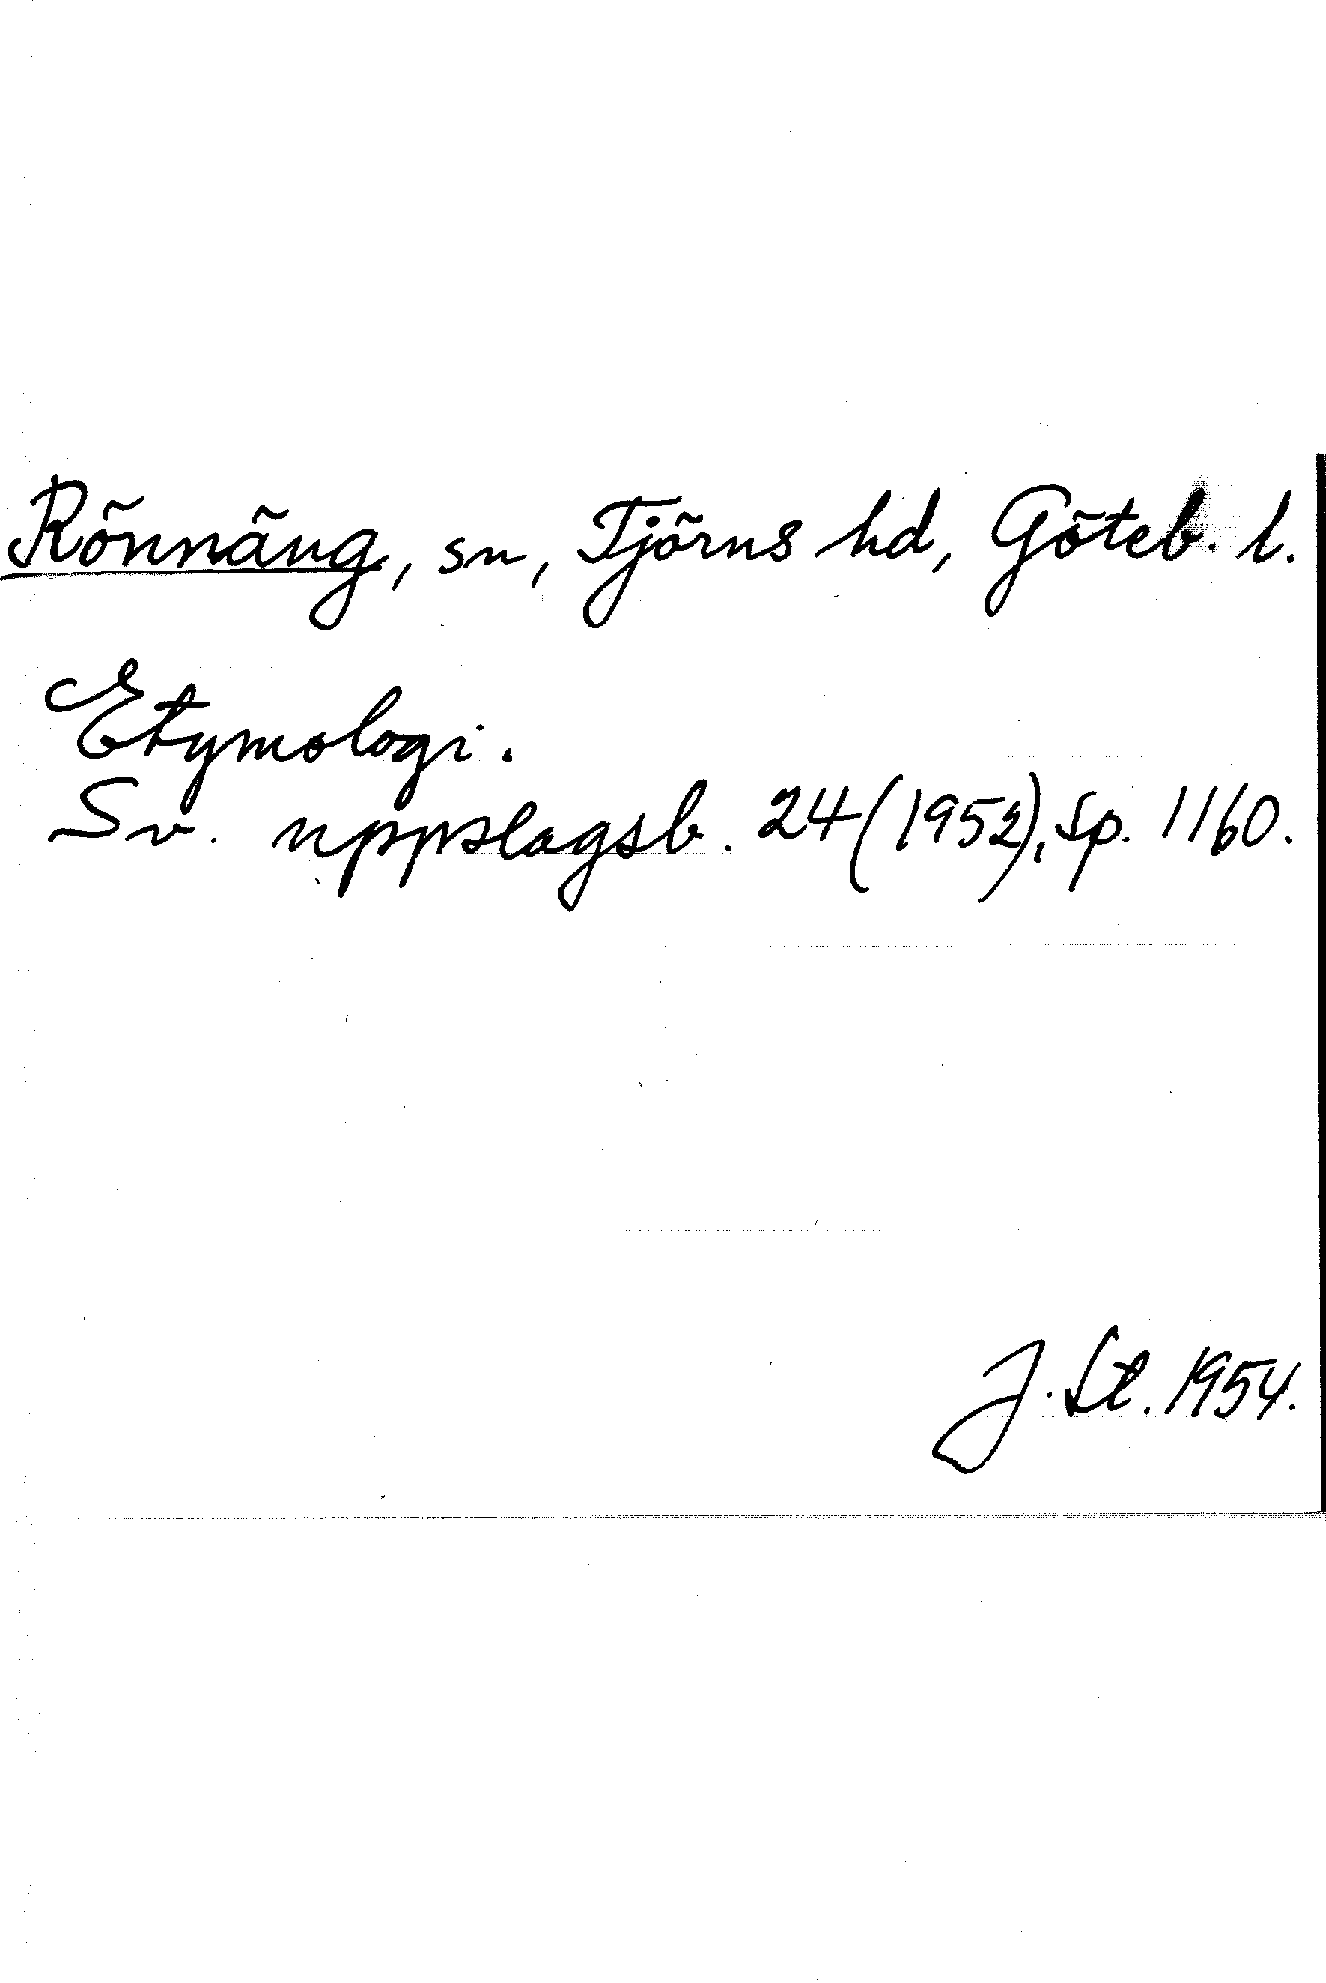 Rönnäng, sn, Tjörns hd, Göteb. l.
Etymologi.
Sv. uppslagsb. 24 (1952), sp. 1160.
J. St. 1954.